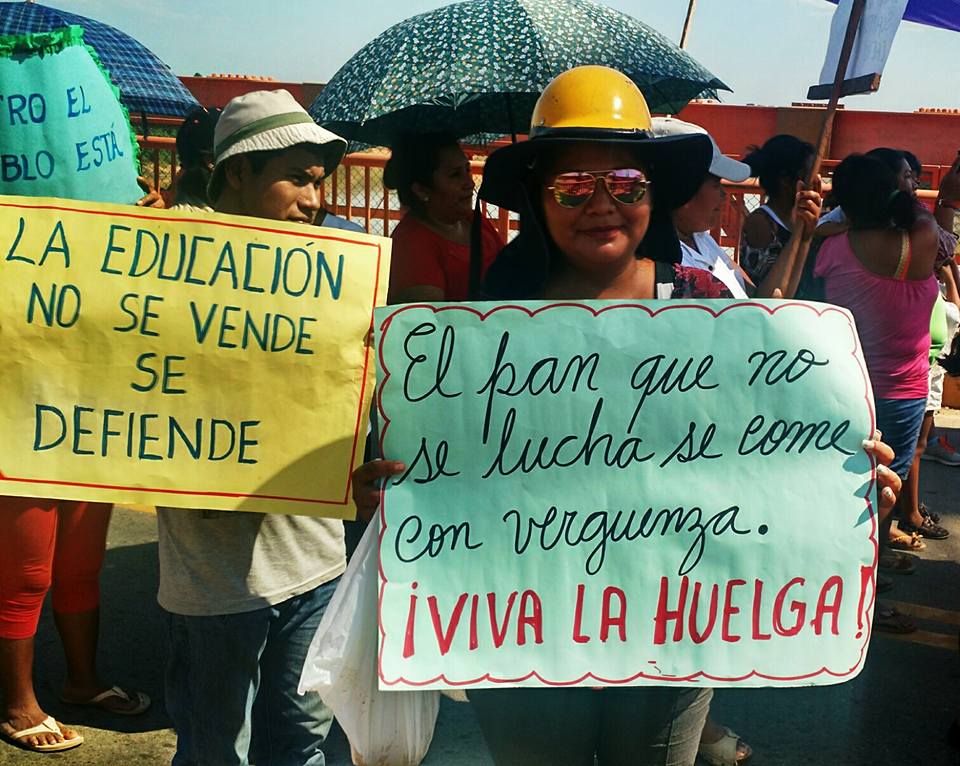 RO EL
BLO ESTÁ
LA EDUCACIÓN
NO SE VENDE
SE
DEFIENDE
El pan que no
se lucha se come
con verguenza.
¡VIVA LA HUELGA!